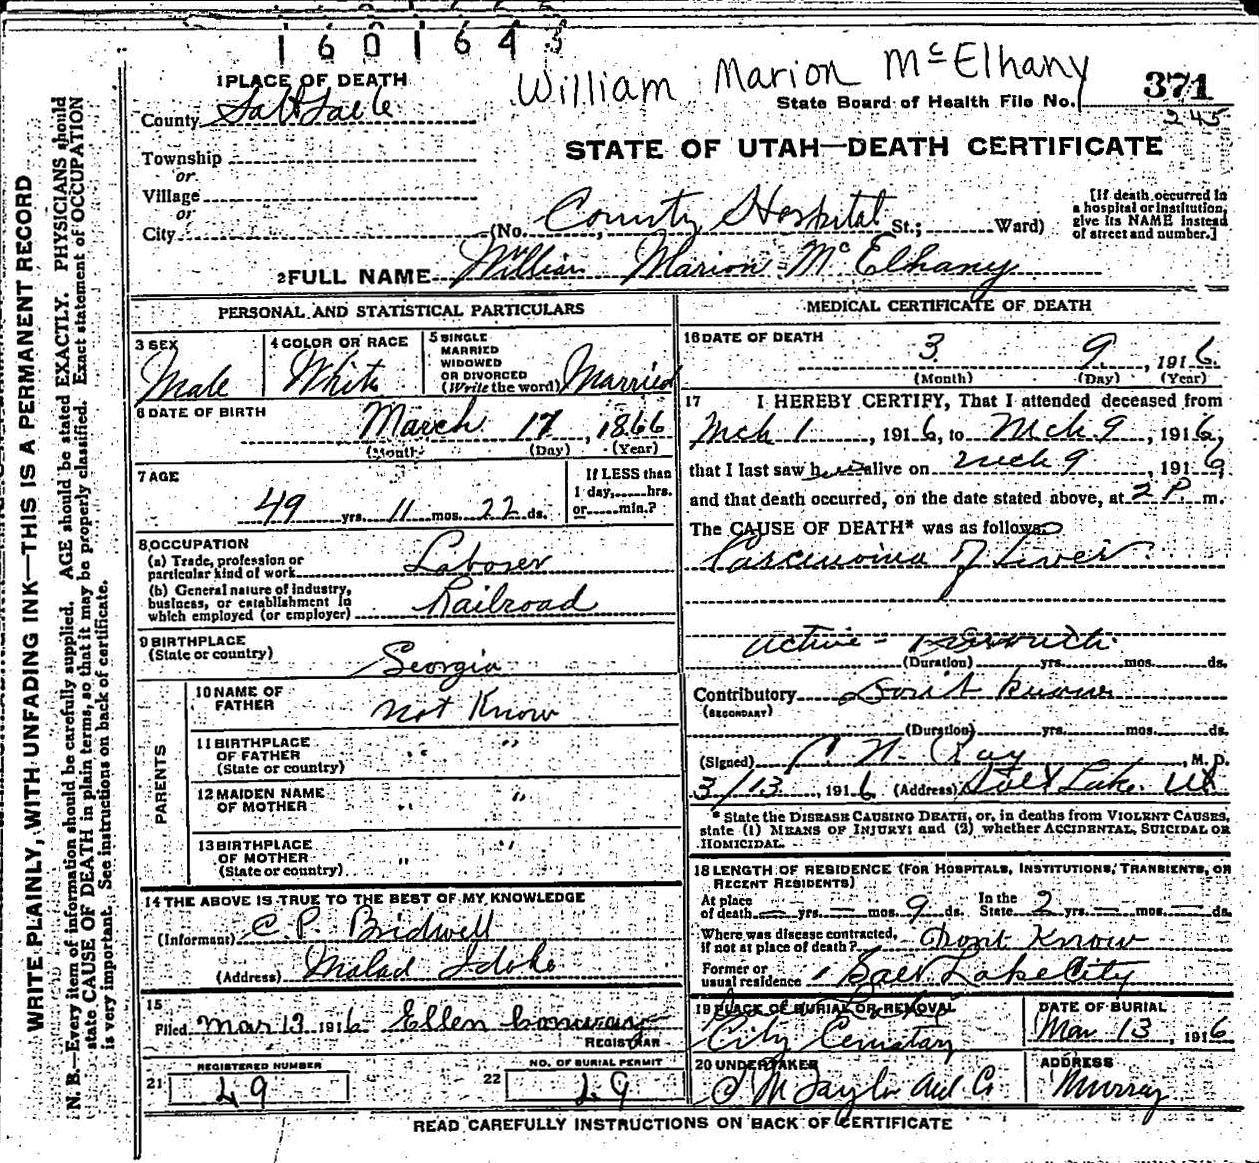 1601643
William Marion McElhany
1 PLACE OF DEATH
State Board of Health File No. 371
245
County Salt Lake
STATE OF UTAH—DEATH CERTIFICATE
Township
or
Village
or
City (No. County Hospital St.; Ward)
[If death occurred in
a hospital or institution,
give its NAME instead
of street and number.]
2 FULL NAME William Marion McElhany
PERSONAL AND STATISTICAL PARTICULARS
3 SEX
Male
4 COLOR OR RACE
White
5 SINGLE
MARRIED
WIDOWED
OR DIVORCED
(Write the word) Married
6 DATE OF BIRTH
March 17, 1866
(Month) (Day) (Year)
7 AGE
49 yrs. 11 mos. 22 ds.
If LESS than
1 day, hrs.
or min.?
8 OCCUPATION
(a) Trade, profession or
particular kind of work Laborer
(b) General nature of industry,
business, or establishment in
which employed (or employer) Railroad
9 BIRTHPLACE
(State or country) Georgia
PARENTS
10 NAME OF
FATHER not Know
11 BIRTHPLACE
OF FATHER
(State or country) " "
12 MAIDEN NAME
OF MOTHER " "
13 BIRTHPLACE
OF MOTHER
(State or country) " "
14 THE ABOVE IS TRUE TO THE BEST OF MY KNOWLEDGE
(Informant) C. P. Bridwell
(Address) Malad Idaho
15
Filed Mar 13 1916 Ellen
REGISTRAR
REGISTERED NUMBER
21 49
NO. OF BURIAL PERMIT
22 49
MEDICAL CERTIFICATE OF DEATH
16 DATE OF DEATH
3 9, 1916.
(Month) (Day) (Year)
17 I HEREBY CERTIFY, That I attended deceased from
Mch 1, 1916, to Mch 9, 1916,
that I last saw h alive on Mch 9, 1916,
and that death occurred, on the date stated above, at 2 P. m.
The CAUSE OF DEATH* was as follows:
Carcinoma of Liver
active -
(Duration) yrs. mos. ds.
Contributory Don't Know
(SECONDARY)
(Duration) yrs. mos. ds.
(Signed) Ray, M. D.
3/13, 1916 (Address) Salt Lake Ut
* State the DISEASE CAUSING DEATH, or, in deaths from VIOLENT CAUSES,
state (1) MEANS OF INJURY; and (2) whether ACCIDENTAL, SUICIDAL OR
HOMICIDAL.
18 LENGTH OF RESIDENCE (FOR HOSPITALS, INSTITUTIONS, TRANSIENTS, OR
RECENT RESIDENTS)
At place
of death — yrs. — mos. 9 ds. In the
State 2 yrs. — mos. — ds.
Where was disease contracted,
if not at place of death? Dont Know
Former or
usual residence Salt Lake City
19 PLACE OF BURIAL OR REMOVAL
City Cemetary
DATE OF BURIAL
Mar 13, 1916
20 UNDERTAKER
M Taylor and Co
ADDRESS
Murray
READ CAREFULLY INSTRUCTIONS ON BACK OF CERTIFICATE
WRITE PLAINLY, WITH UNFADING INK—THIS IS A PERMANENT RECORD
N. B.—Every item of information should be carefully supplied. AGE should be stated EXACTLY. PHYSICIANS should
state CAUSE OF DEATH in plain terms, so that it may be properly classified. Exact statement of OCCUPATION
is very important. See instructions on back of certificate.